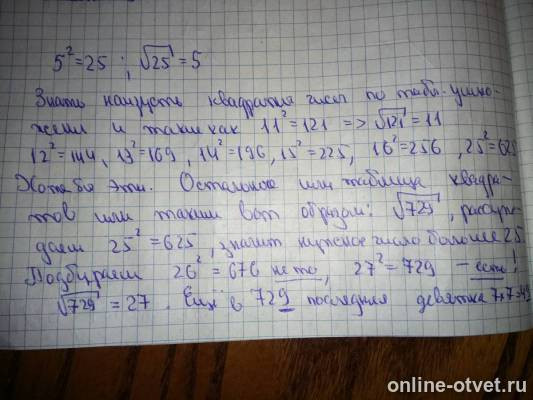 5²=25 ; √25=5
Знать наизусть квадраты чисел по табл. умно-
жения и такие как 11²=121 => √121=11
12²=144, 13²=169, 14²=196, 15²=225, 16²=256, 25²=625
Хотя бы эти. Остальное или таблица квадра-
тов или таким вот образом: √729, рассуж-
даем 25²=625, значит нужное число больше 25
Подбираем 26²=676 не то, 27²=729 – есть!
√729=27. Еще в 729 последняя девятка 7х7=49
online-otvet.ru